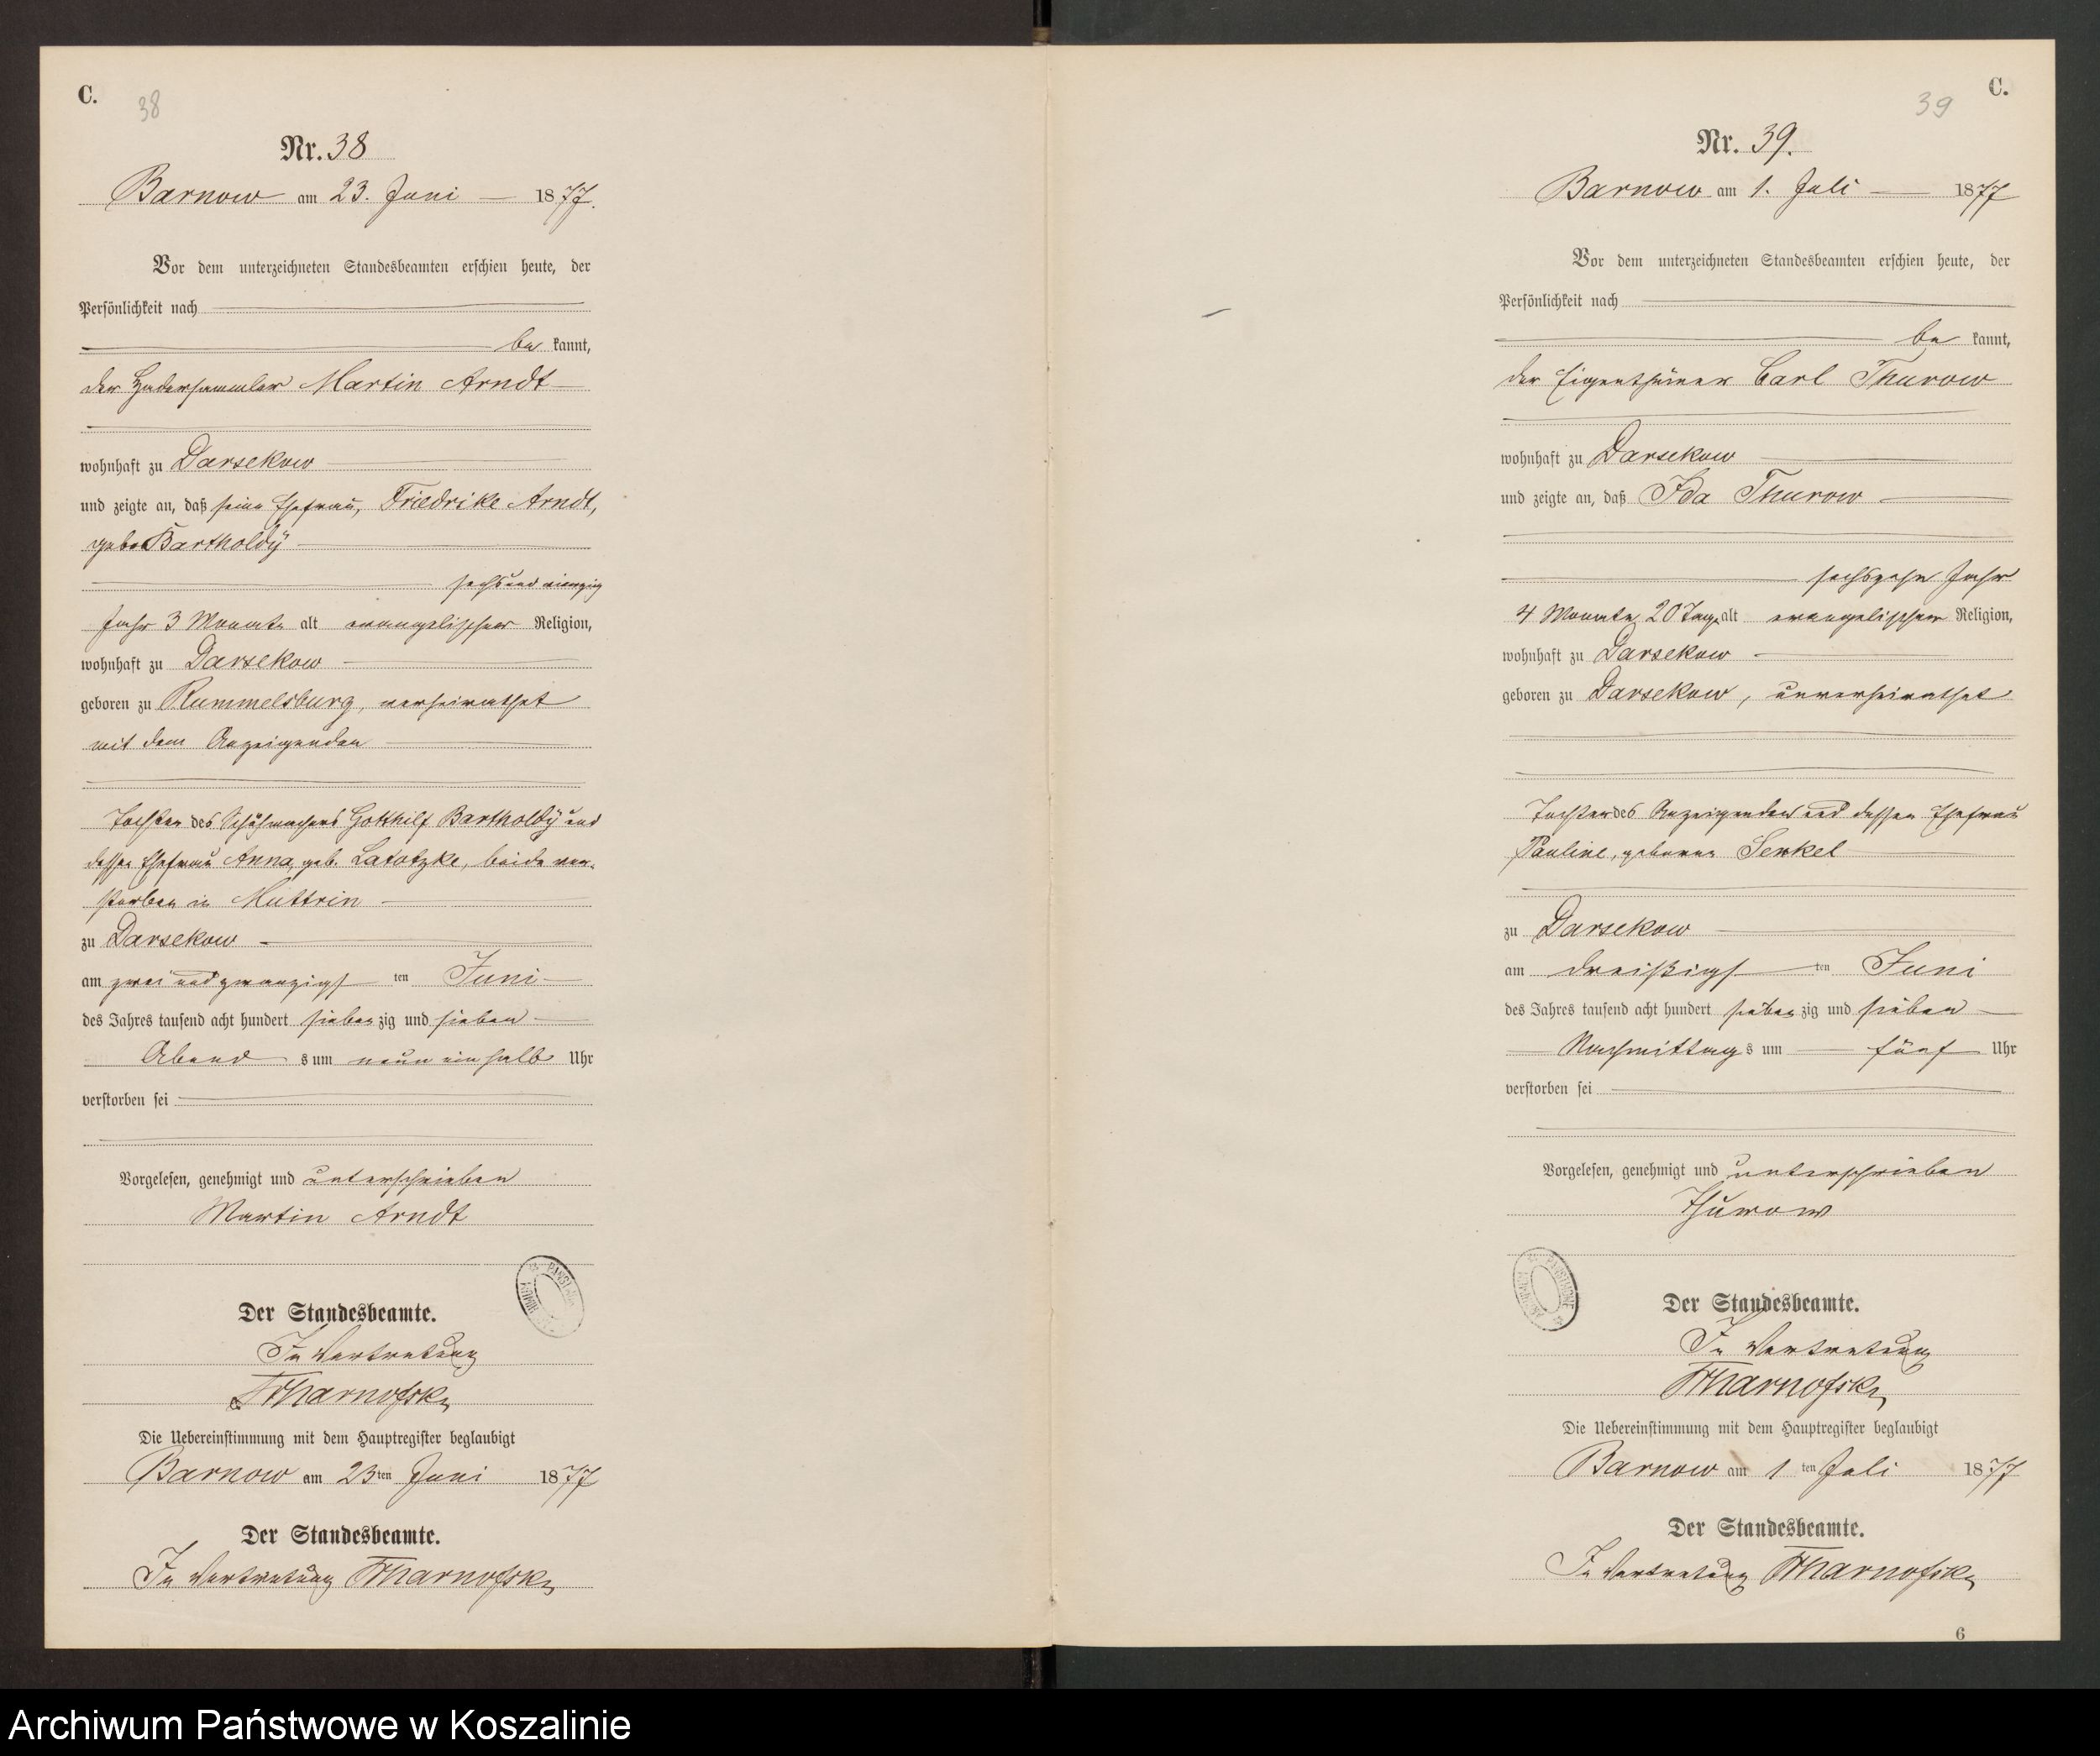 C.
38
Nr. 38
Barnow am 23. Juni 1877.
Vor dem unterzeichneten Standesbeamten erschien heute, der
Persönlichkeit nach
be kannt,
der Hadersammler Martin Arndt
wohnhaft zu Darsekow
und zeigte an, daß seine Ehefrau, Friedrike Arndt,
geb. Bartholdÿ
sechsundvierzig
Jahr 3 Monate alt evangelischer Religion,
wohnhaft zu Darsekow
geboren zu Rummelsburg, verheirathet
mit dem Anzeigenden
Tochter des Schuhmachers Gotthilf Bartholdÿ und
dessen Ehefrau Anna, geb. Latotzke, beide ver-
storben in Muttrin
zu Darsekow
am zwei und zwanzigst ten Juni
des Jahres tausend acht hundert sieben zig und sieben
Abend s um neun ein halb Uhr
verstorben sei
Vorgelesen, genehmigt und unterschrieben
Martin Arndt
Der Standesbeamte.
In Vertretung
Die Uebereinstimmung mit dem Hauptregister beglaubigt
Barnow am 23ten Juni 1877
Der Standesbeamte.
In Vertretung
C.
39
Nr. 39.
Barnow am 1. Juli 1877
Vor dem unterzeichneten Standesbeamten erschien heute, der
Persönlichkeit nach
be kannt,
der Eigenthümer Carl Thurow
wohnhaft zu Darsekow
und zeigte an, daß Ida Thurow
sechszehn Jahr
4 Monate 20 Tage alt evangelischer Religion,
wohnhaft zu Darsekow
geboren zu Darsekow, unverheirathet
Tochter des Anzeigenden und dessen Ehefrau
Pauline, geborne Senkel
zu Darsekow
am dreißigst ten Juni
des Jahres tausend acht hundert sieben zig und sieben
Nachmittag s um fünf Uhr
verstorben sei
Vorgelesen, genehmigt und unterschrieben
Thurow
Der Standesbeamte.
In Vertretung
Die Uebereinstimmung mit dem Hauptregister beglaubigt
Barnow am 1 ten Juli 1877
Der Standesbeamte.
In Vertretung
6
Archiwum Państwowe w Koszalinie